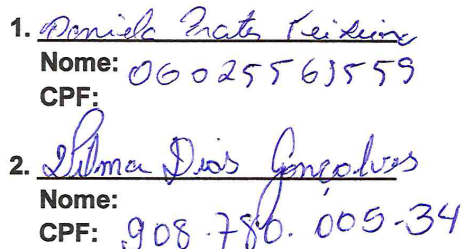 1. Daniela Prates Teixeira
Nome: 06025563559
CPF:
2. Dilma Dias Gonçalves
Nome:
CPF: 908.780.005-34